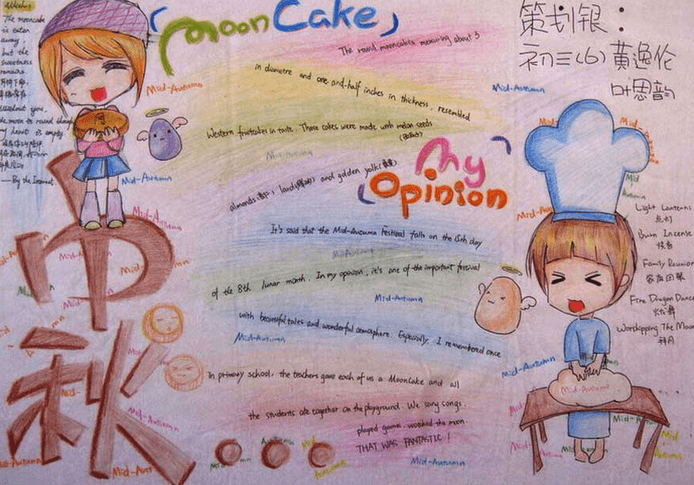 Moon Cake
The round mooncakes measuring about 3
in diametre and one and-half inches in thickness, resembled
Western fruitcakes in taste. These cakes were made with melon seeds
almonds
and golden yolk
My
Opinion
It's said that the Mid-Autumn Festival falls on the 15th day
of the 8th lunar month. In my opinion, it's one of the important festival
with beautiful tales and wonderful atmosphere. Especially, I remembered once
In primary school, the teachers gave each of us a MoonCake and all
the students ate together on the playground. We sang songs,
played game, watched the moon.
THAT WAS FANTASTIC!
The mooncake
is eaten
away,
but the
sweetness
remains
Without you,
the moon is round though
my heart is empty
—By the Internet
中
秋
策划银：
初三(6) 黄逸伦
叶思韵
Light Lanterns
点灯
Burn Incense
烧香
Family Reunion
家庭团聚
Fire Dragon Dance
火龙舞
Worshipping The Moon
拜月
Mid-Autumn
Mid-Autumn
Mid-Autumn
Mid-Autumn
Mid-Autumn
Mid-Autumn
Mid-Autumn
Mid-Autumn
Mid-Autumn
Mid-Autumn
Mid-Autumn
Mid-Autumn